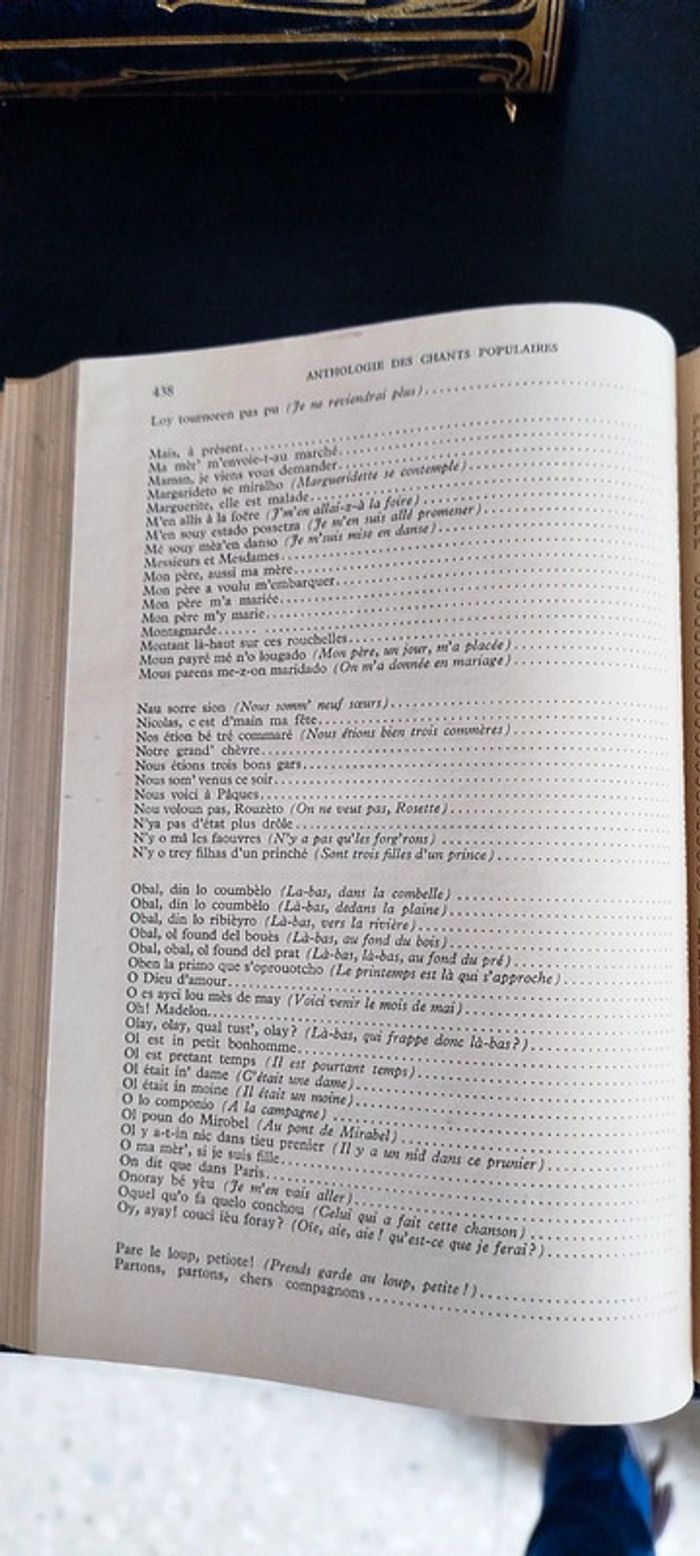 438
ANTHOLOGIE DES CHANTS POPULAIRES
Loy tournoren pas pu (Je ne reviendrai plus)
Mais, à présent
Ma mèr' m'envoie-t-au marché
Maman, je viens vous demander
Margarideto se miralho (Margueridette se contemple)
Marguerite, elle est malade
M'en allis à la foëre (J'm'en allai-z-à la foire)
M'en souy estado possetza (Je m'en suis allé promener)
Mé souy mèz'en danso (Je m'suis mise en danse)
Messieurs et Mesdames
Mon père, aussi ma mère
Mon père a voulu m'embarquer
Mon père m'a mariée
Mon père m'y marie
Montagnarde
Montant là-haut sur ces rouchelles
Moun payré mé n'o lougado (Mon père, un jour, m'a placée)
Mous parens me-z-on maridado (On m'a donnée en mariage)
Nau sorre sion (Nous somm' neuf sœurs)
Nicolas, c'est d'main ma fête
Nos étion bé tré commaré (Nous étions bien trois commères)
Notre grand' chèvre
Nous étions trois bons gars
Nous som' venus ce soir
Nous voici à Pâques
Nou voloun pas, Rouzèto (On ne veut pas, Rosette)
N'ya pas d'état plus drôle
N'y o mâ les faouvres (N'y a pas qu'les forg'rons)
N'y o trey filhas d'un princhê (Sont trois filles d'un prince)
Obal, din lo coumbèlo (La-bas, dans la combelle)
Obal, din lo coumbèlo (Là-bas, dedans la plaine)
Obal, din lo ribièyro (Là-bas, vers la rivière)
Obal, ol found del bouès (Là-bas, au fond du bois)
Obal, obal, ol found del prat (Là-bas, là-bas, au fond du pré)
Oben la primo que s'oprouotcho (Le printemps est là qui s'approche)
O Dieu d'amour
O es ayci lou mès de may (Voici venir le mois de mai)
Oh! Madelon
Olay, olay, qual tust', olay? (Là-bas, qui frappe donc là-bas?)
Ol est in petit bonhomme
Ol est pretant temps (Il est pourtant temps)
Ol était in' dame (C'était une dame)
Ol était in moine (Il était un moine)
O lo componio (A la campagne)
Ol poun do Mirobel (Au pont de Mirabel)
Ol y a-t-in nic dans tieu prenier (Il y a un nid dans ce prunier)
O ma mèr', si je suis fille
On dit que dans Paris
Onoray bé yèu (Je m'en vais aller)
Oquel qu'o fa quelo conchou (Celui qui a fait cette chanson)
Oy, ayay! couci ièu foray? (Oïe, aïe, aïe! qu'est-ce que je ferai?)
Pare le loup, petiote! (Prends garde au loup, petite!)
Partons, partons, chers compagnons